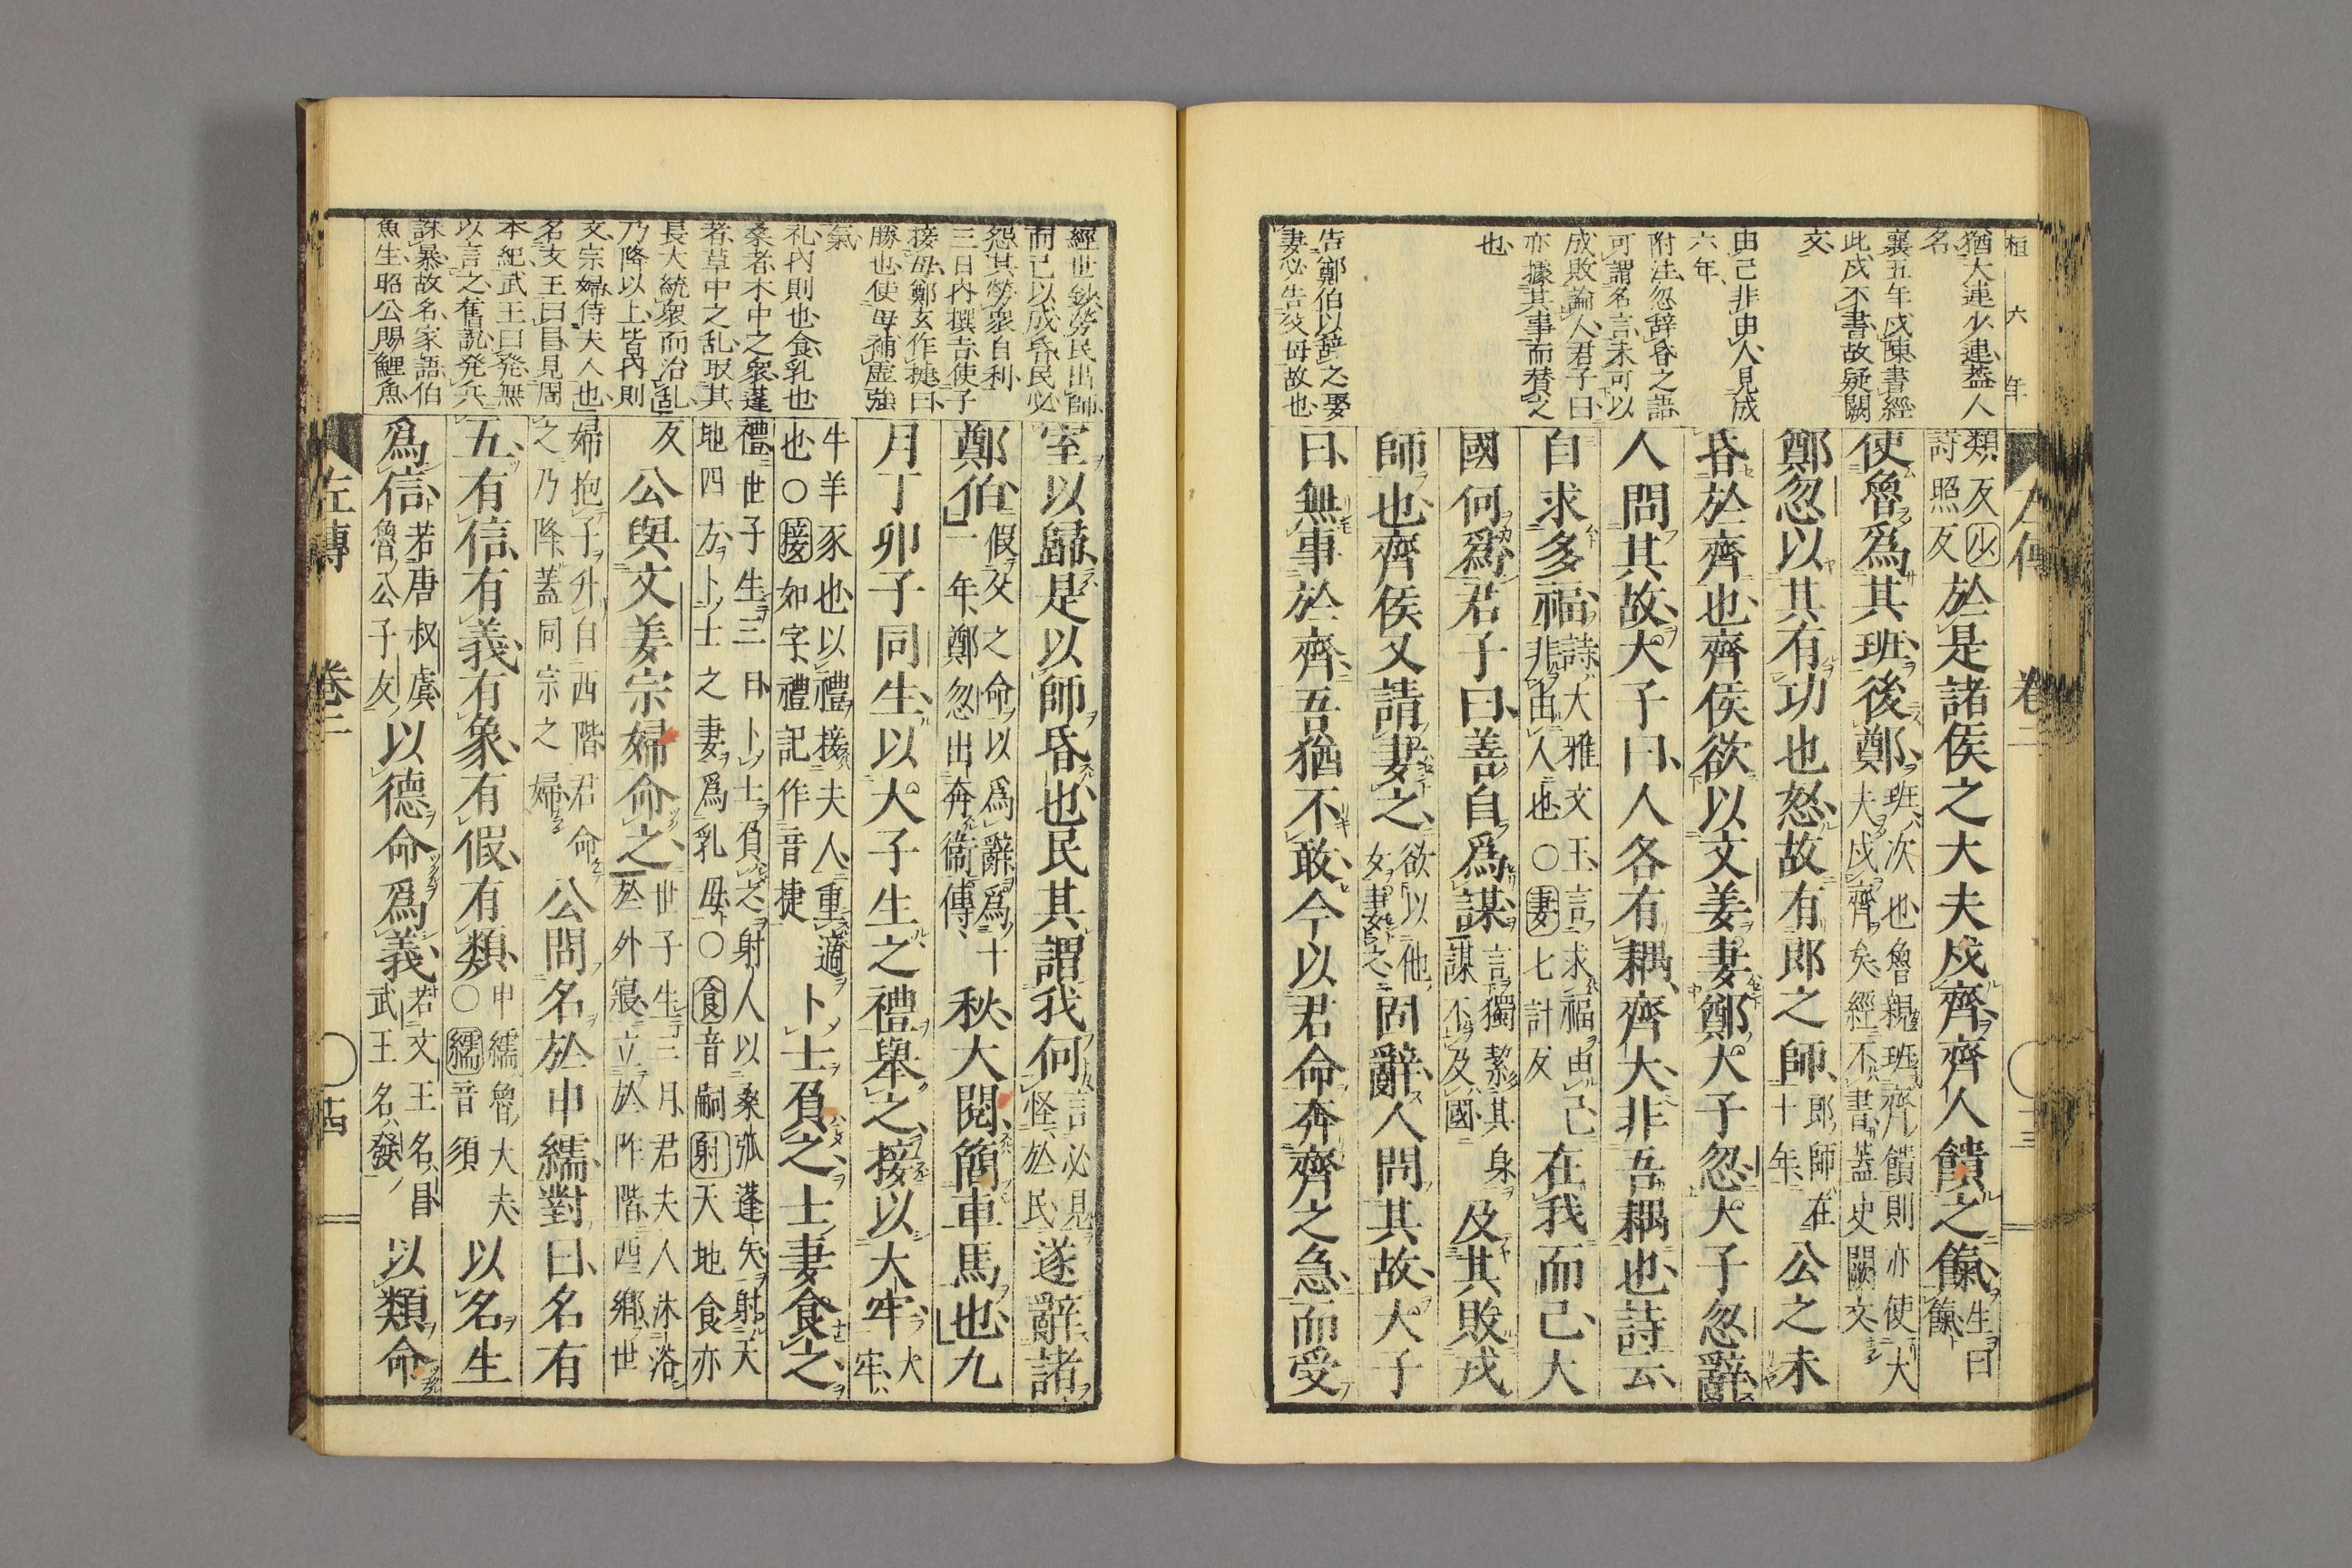 桓六年
猶大連少連蓋人
名
襄五年戍陳書經
此戍不書故疑闕
文
由己非由人見成
六年
附注忽辞昏之語
可謂名言未可以
成敗論人君子曰
亦據其事而賛之
也
告鄭伯以辞之娶
妻必告父母故也
左傳 卷二 十三
類反少
詩照反
於是諸侯之大夫戍齊齊人饋之餼
生曰
餼
使魯爲其班後鄭
班次也魯親班齊饋則亦使大
夫戍齊矣經不書蓋史闕文
鄭忽以其有功也怒故有郎之師
郎師在
十年
公之未
昏於齊也齊侯欲以文姜妻鄭大子忽大子忽辭
人問其故大子曰人各有耦齊大非吾耦也詩云
自求多福
詩大雅文王言求福由己
非由人也○妻七計反
在我而已大
國何爲君子曰善自爲謀
言獨絜其身
謀不及國
及其敗戎
師也齊侯又請妻之
欲以他
女妻之
問辭人問其故大子
曰無事於齊吾猶不敢今以君命奔齊之急而受
經世鈔勞民出師
而已以成昏民必
怨其勞衆自利
三日内撰吉使子
接母鄭玄作捷曰
勝也使母補虚強
氣
礼内則也食乳也
桑者木中之衆蓬
者草中之乱取其
長大統衆而治乱
乃降以上皆内則
文宗婦侍夫人也
名文王曰昌見周
本紀武王曰発無
以言之舊説発兵
誅暴故名家語伯
魚生昭公賜鯉魚
室以歸是以師昏也民其謂我何
言必見
怪於民
遂辭諸
鄭伯
假父之命以爲辭爲十
一年鄭忽出奔衞傳
秋大閱簡車馬也九
月丁卯子同生以大子生之禮舉之接以大牢
大
牢
牛羊豕也以禮接夫人重適
也○接如字禮記作音捷
卜士負之士妻食之
禮世子生三日卜士負之射人以桑弧蓬矢射天
地四方卜士之妻爲乳母○食音嗣射天地食亦
反
公與文姜宗婦命之
世子生三月君夫人沐浴
於外寢立於阼階西鄉世
婦抱子升自西階君命
之乃降蓋同宗之婦
公問名於申繻對曰名有
五有信有義有象有假有類
申繻魯大夫
○繻音須
以名生
爲信
若唐叔虞
魯公子友
以德命爲義
若文王名昌
武王名發
以類命
左傳 卷二 十四